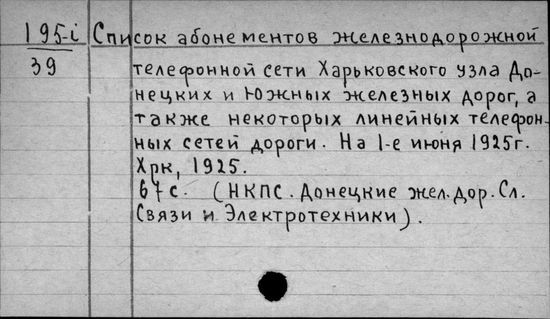 195-i Список абонементов железнодорожной
39 телефонной сети Харьковского узла До-
нецких и Южных железных дорог, а
также некоторых линейных телефон-
ных сетей дороги. На 1-е июня 1925г.
Хрк, 1925.
67с. (НКПС. Донецкие жел. дор. Сл.
Связи и Электротехники).